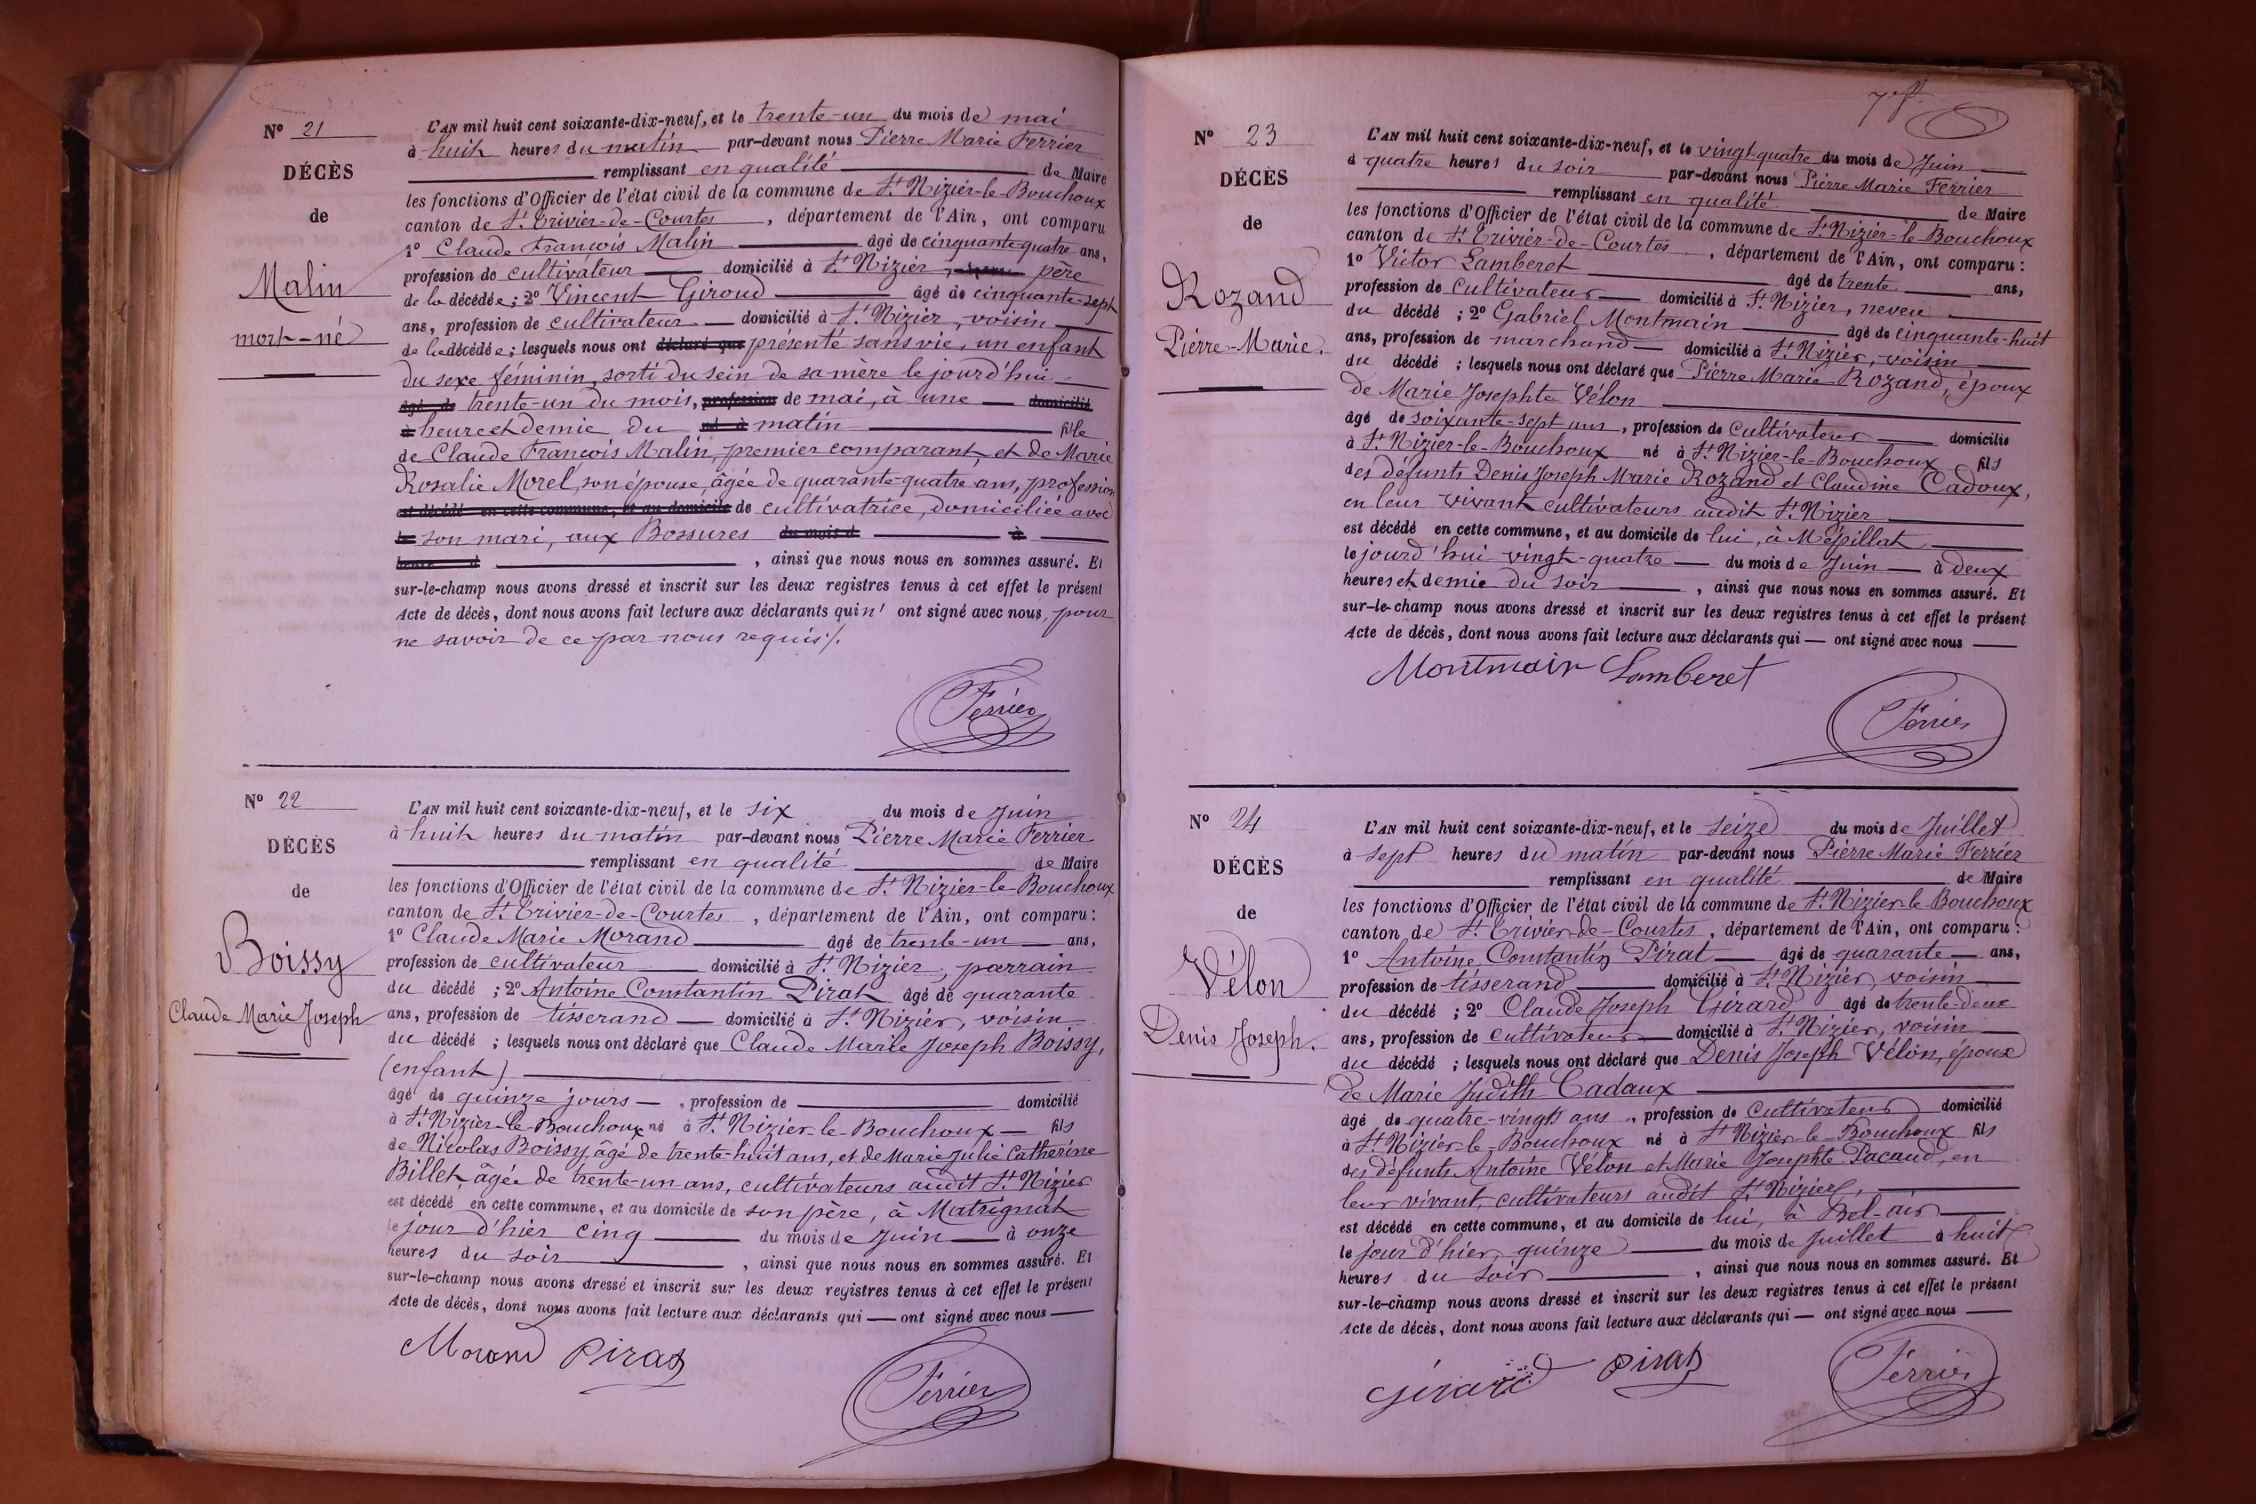 N° 21
DÉCÈS
de
Malin
mort-né
L'AN mil huit cent soixante-dix-neuf, et le trente-un du mois de mai
à huit heures du matin par-devant nous Pierre Marie Ferrier
remplissant en qualité de Maire
les fonctions d'Officier de l'état civil de la commune de St Nizier-le-Bouchoux
canton de St Trivier-de-Courtes, département de l'Ain, ont comparu
1° Claude François Malin âgé de cinquante-quatre ans,
profession de cultivateur domicilié à St Nizier, père
de la décédée; 2° Vincent Giroud âgé de cinquante-sept
ans, profession de cultivateur domicilié à St Nizier, voisin
de la décédée; lesquels nous ont déclaré que présenté sans vie, un enfant
du sexe féminin, sorti du sein de sa mère le jourd'hui
âgé de trente-un du mois, profession de mai, à une domicilié
à heure et demie du né à matin fille
de Claude François Malin, premier comparant, et de Marie
Rosalie Morel, son épouse, âgée de quarante-quatre ans, profession
est décédé en cette commune, et au domicile de de cultivatrice, domiciliée avec
le son mari, aux Bossures du mois d à
heure d , ainsi que nous nous en sommes assuré. Et
sur-le-champ nous avons dressé et inscrit sur les deux registres tenus à cet effet le présent
Acte de décès, dont nous avons fait lecture aux déclarants qui n' ont signé avec nous, pour
ne savoir de ce par nous requis /.
Ferrier
N° 22
DÉCÈS
de
Boissy
Claude Marie Joseph
L'AN mil huit cent soixante-dix-neuf, et le six du mois de Juin
à huit heures du matin par-devant nous Pierre Marie Ferrier
remplissant en qualité de Maire
les fonctions d'Officier de l'état civil de la commune de St Nizier-le-Bouchoux
canton de St Trivier-de-Courtes, département de l'Ain, ont comparu:
1° Claude Marie Morand âgé de trente-un ans,
profession de cultivateur domicilié à St Nizier, parrain
du décédé; 2° Antoine Constantin Pirat âgé de quarante
ans, profession de tisserand domicilié à St Nizier, voisin
du décédé; lesquels nous ont déclaré que Claude Marie Joseph Boissy,
(enfant)
âgé de quinze jours, profession de domicilié
à St Nizier-le-Bouchoux né à St Nizier-le-Bouchoux fils
de Nicolas Boissy âgé de trente-huit ans, et de Marie Julie Catherine
Billet, âgée de trente-un ans, cultivateurs audit St Nizier
est décédé en cette commune, et au domicile de son père, à Matrignat
le jour d'hier cinq du mois de Juin à onze
heures du soir, ainsi que nous nous en sommes assuré. Et
sur-le-champ nous avons dressé et inscrit sur les deux registres tenus à cet effet le présent
Acte de décès, dont nous avons fait lecture aux déclarants qui — ont signé avec nous
Morand Pirat
Ferrier
7e f.
N° 23
DÉCÈS
de
Rozand
Pierre-Marie.
L'AN mil huit cent soixante-dix-neuf, et le vingt-quatre du mois de Juin
à quatre heures du soir par-devant nous Pierre Marie Ferrier
remplissant en qualité de Maire
les fonctions d'Officier de l'état civil de la commune de St Nizier-le-Bouchoux
canton de St Trivier-de-Courtes, département de l'Ain, ont comparu:
1° Victor Lamberet âgé de trente ans,
profession de cultivateur domicilié à St Nizier, neveu
du décédé; 2° Gabriel Montmain âgé de cinquante-huit
ans, profession de marchand domicilié à St Nizier, voisin
du décédé; lesquels nous ont déclaré que Pierre Marie Rozand, époux
de Marie Josephte Vélon
âgé de soixante-sept ans, profession de cultivateur domicilié
à St Nizier-le-Bouchoux né à St Nizier-le-Bouchoux fils
des défunts Denis Joseph Marie Rozand et Claudine Cadoux,
en leur vivant cultivateurs audit St Nizier
est décédé en cette commune, et au domicile de lui, à Mépillat
le jourd'hui vingt-quatre du mois de Juin à deux
heures et demie du soir, ainsi que nous nous en sommes assuré. Et
sur-le-champ nous avons dressé et inscrit sur les deux registres tenus à cet effet le présent
Acte de décès, dont nous avons fait lecture aux déclarants qui — ont signé avec nous
Montmain Lamberet
Ferrier
N° 24
DÉCÈS
de
Vélon
Denis Joseph.
L'AN mil huit cent soixante-dix-neuf, et le seize du mois de Juillet
à sept heures du matin par-devant nous Pierre Marie Ferrier
remplissant en qualité de Maire
les fonctions d'Officier de l'état civil de la commune de St Nizier-le-Bouchoux
canton de St Trivier-de-Courtes, département de l'Ain, ont comparu:
1° Antoine Constantin Pirat âgé de quarante ans,
profession de tisserand domicilié à St Nizier, voisin
du décédé; 2° Claude Joseph Girard âgé de trente-deux
ans, profession de cultivateur domicilié à St Nizier, voisin
du décédé; lesquels nous ont déclaré que Denis Joseph Vélon, époux
de Marie Judith Cadaux
âgé de quatre-vingts ans, profession de cultivateur domicilié
à St Nizier-le-Bouchoux né à St Nizier-le-Bouchoux fils
des défunts Antoine Vélon et Marie Josephte Pacaud, en
leur vivant, cultivateurs audit St Nizier,
est décédé en cette commune, et au domicile de lui, à Bel-air
le jour d'hier, quinze du mois de Juillet à huit
heures du soir, ainsi que nous nous en sommes assuré. Et
sur-le-champ nous avons dressé et inscrit sur les deux registres tenus à cet effet le présent
Acte de décès, dont nous avons fait lecture aux déclarants qui — ont signé avec nous
Girard Pirat
Ferrier